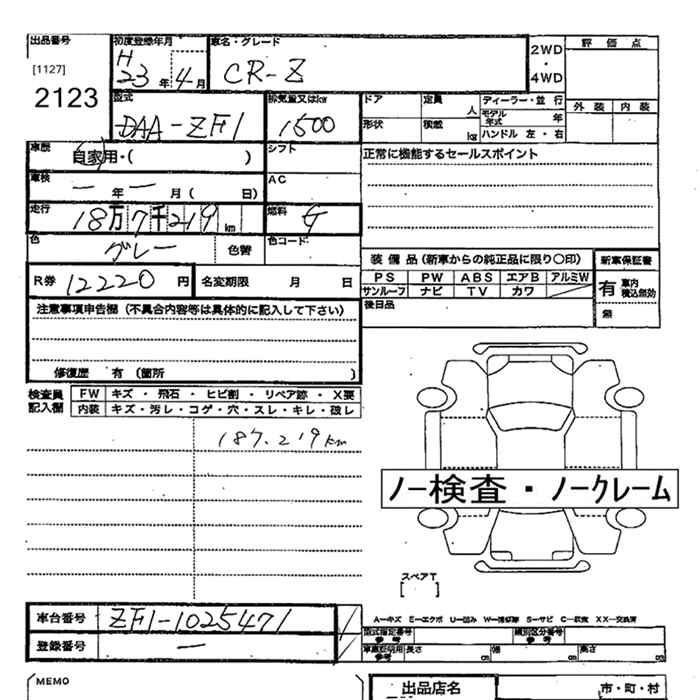 出品番号
[1127]
2123
初度登録年月
H
23年 4月
車名・グレード
CR-Z
2WD
・
4WD
評価点
外装 内装
型式
DAA-ZF1
排気量又はkw
1500
ドア
定員 人
形状
積載 kg
ディーラー・並行
モデル年式 年
ハンドル 左・右
車歴
自家用・( )
シフト
正常に機能するセールスポイント
車検
一 年 一 月( 日)
AC
走行
18万7千219 km
燃料
G
色
グレー
色替
色コード
R券 12220 円
名変期限 月 日
装備品(新車からの純正品に限り〇印)
PS PW ABS エアB アルミW
サンルーフ ナビ TV カワ
新車保証書
有 車内積込無効
無
後日品
注意事項申告欄(不具合内容等は具体的に記入して下さい)
修復歴 有(箇所 )
検査員記入欄
FW キズ・飛石・ヒビ割・リペア跡・X要
内装 キズ・汚レ・コゲ・穴・スレ・キレ・破レ
187.219km
ノー検査・ノークレーム
スペアT
[ ]
車台番号 ZF1-1025471
登録番号 一
A―キズ E―エクボ U―凹み W―補修跡 S―サビ C―腐食 XX―交換済
型式指定番号 参考
類別区分番号 参考
車庫証明用 参考
長さ cm
幅 cm
高さ cm
MEMO
出品店名
市・町・村